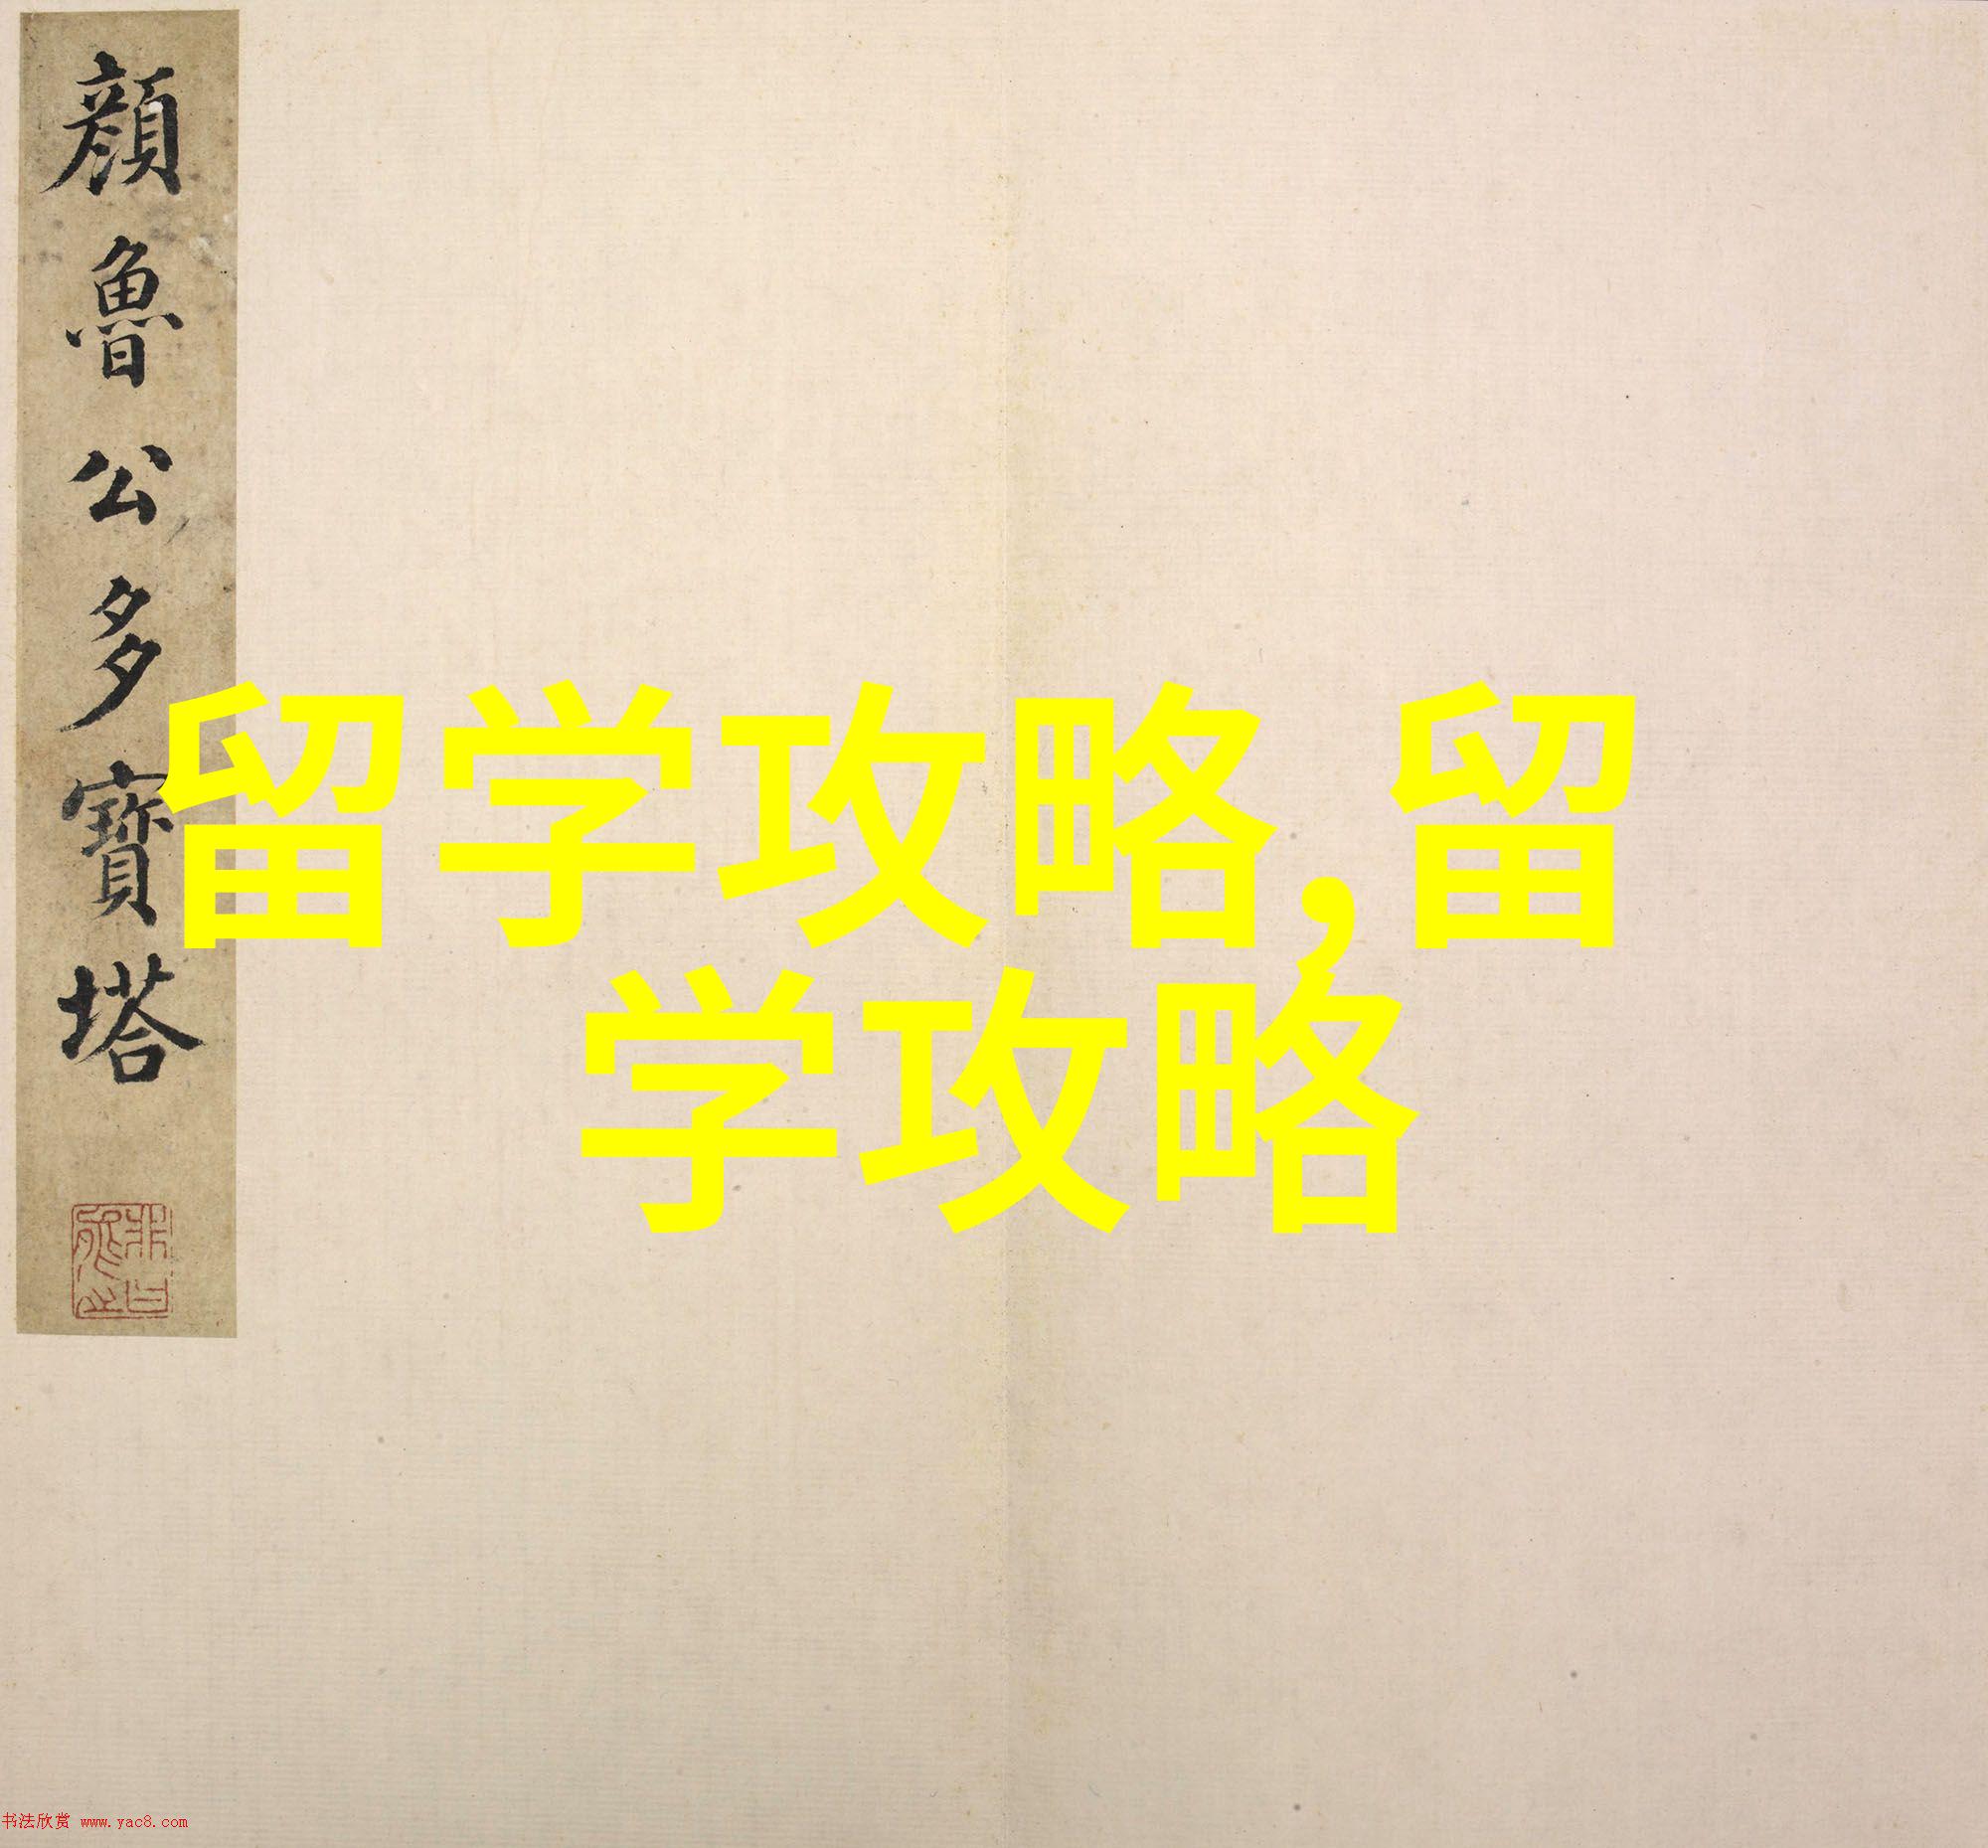 顔魯公多寶塔
留学攻略,留
学攻略
书法欣赏 www.yac8.com